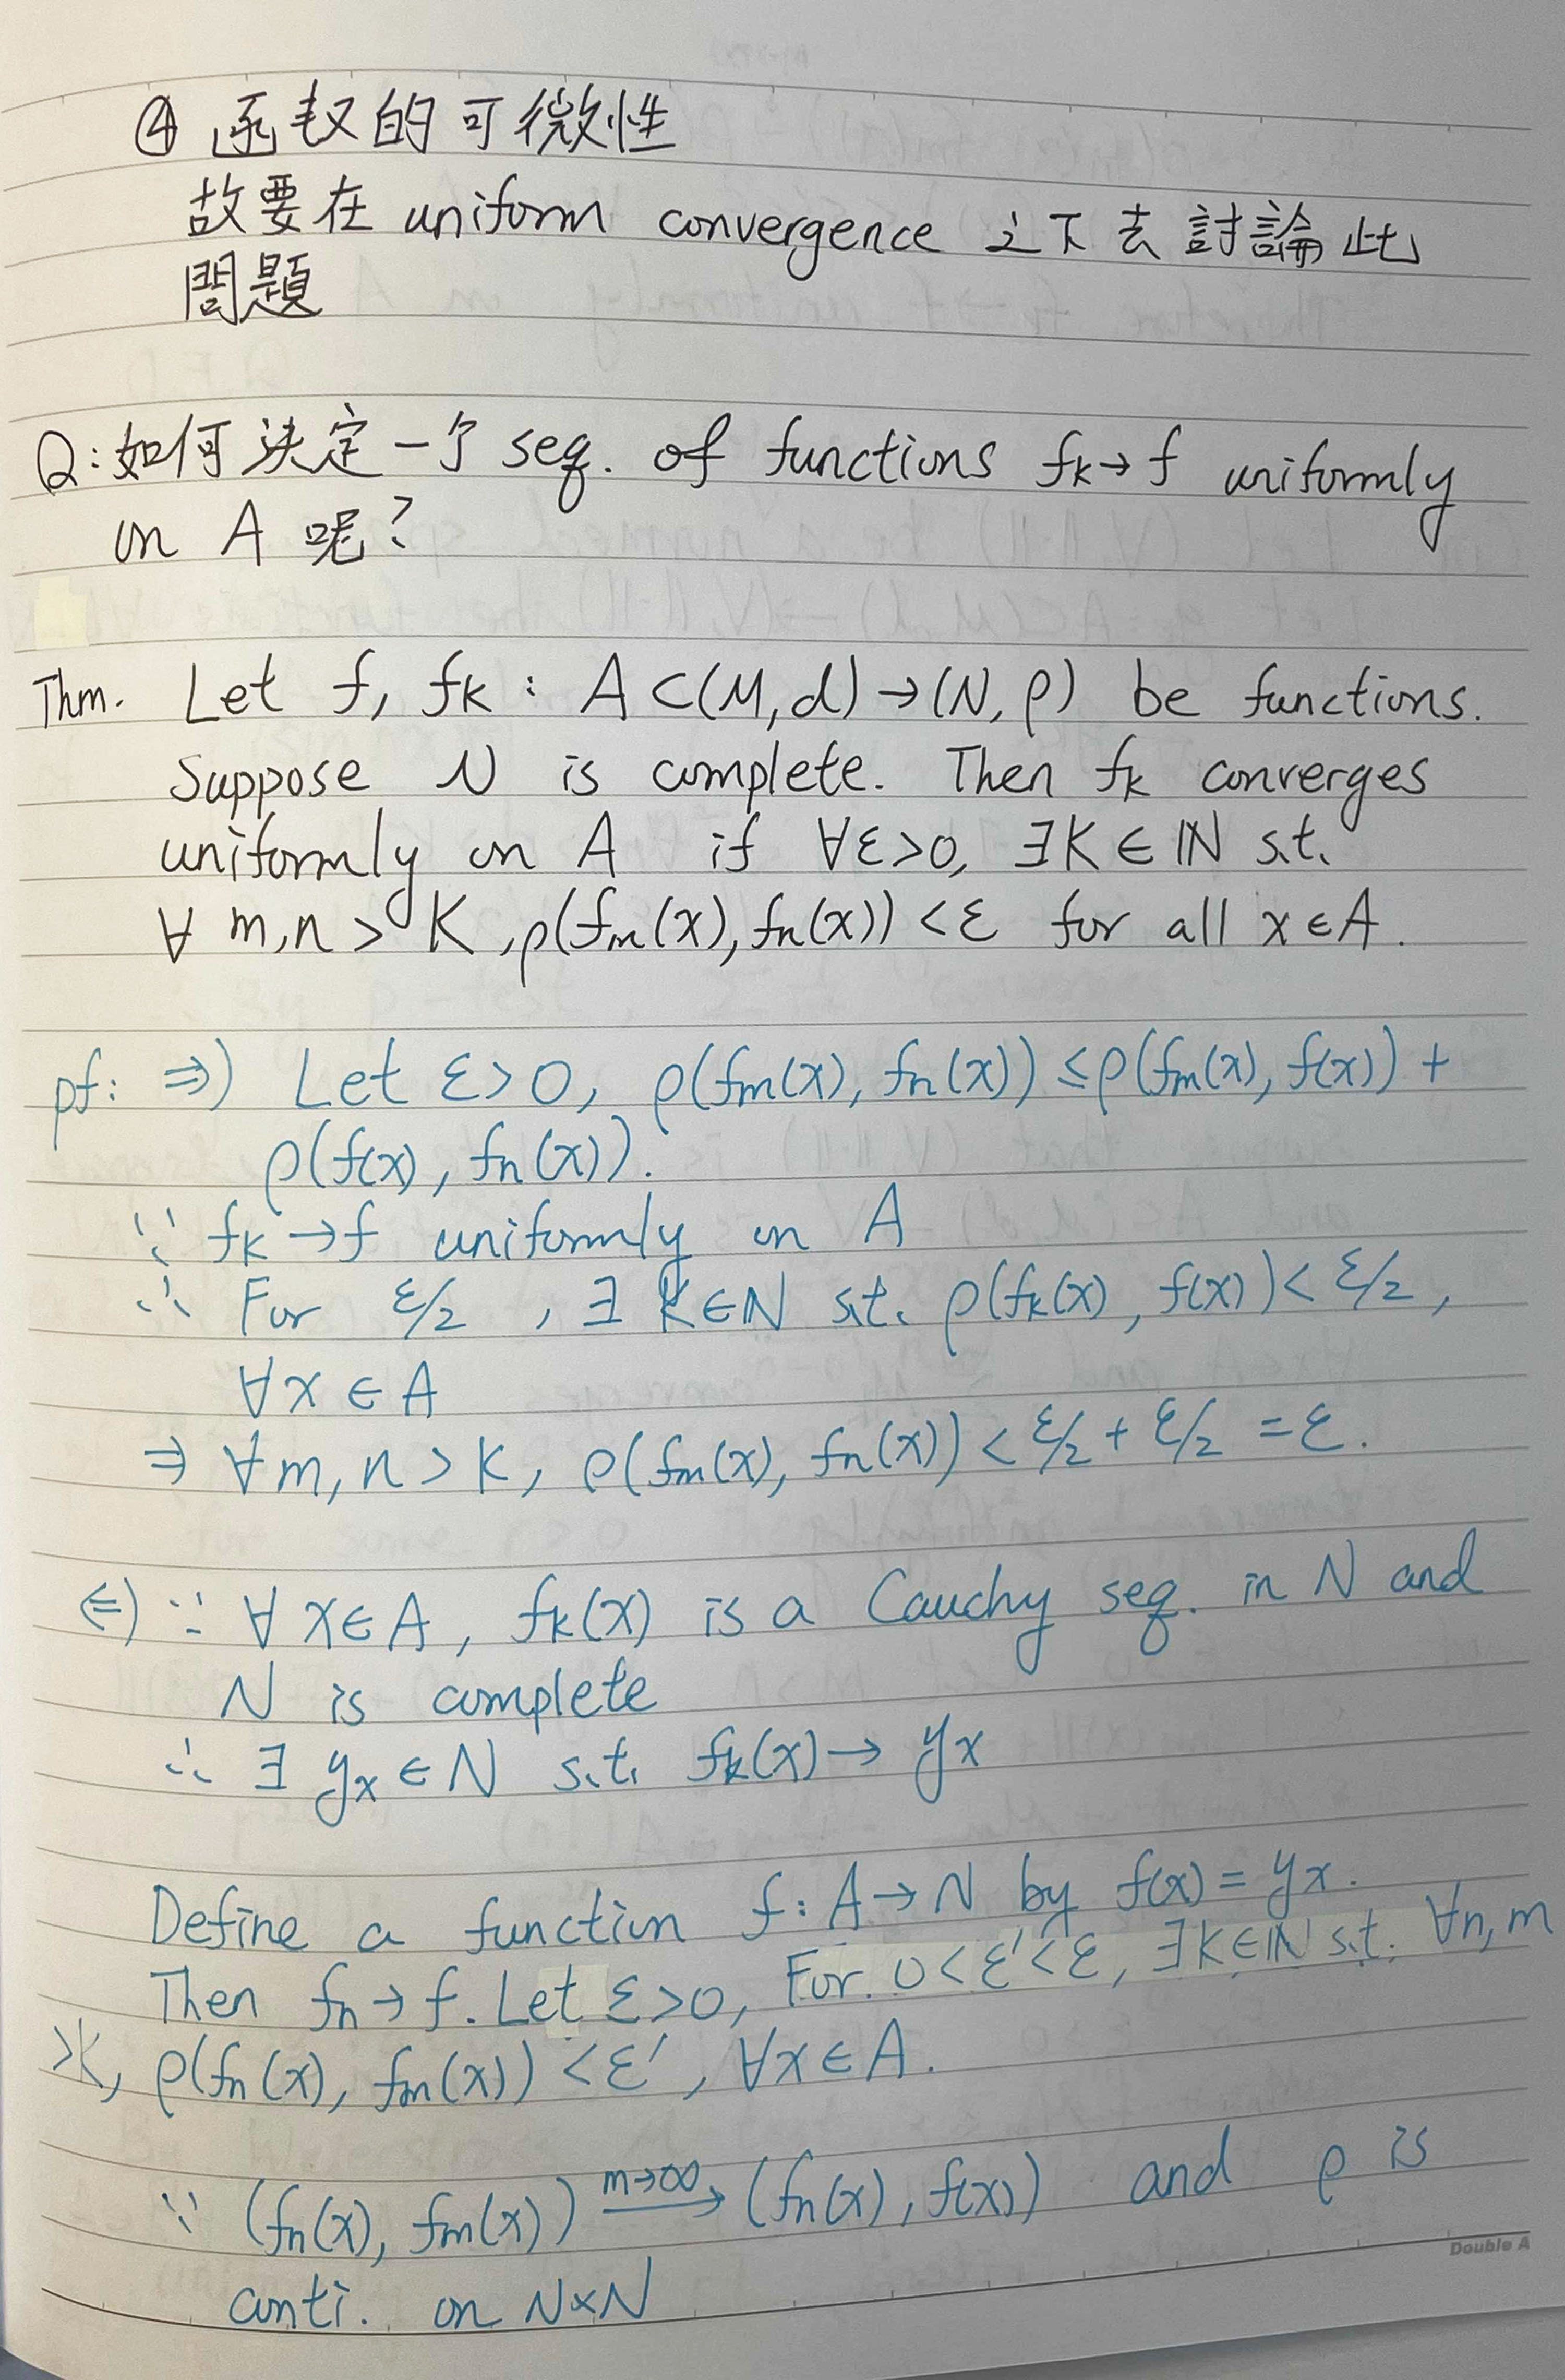 ④ 函数的可微性
故要在 uniform convergence 之下去討論此
問題
Q:如何決定一个 seq. of functions fₖ→f uniformly
on A 呢?
Thm. Let f, fₖ : A⊂(M,d)→(N,ρ) be functions.
Suppose N is complete. Then fₖ converges
uniformly on A if ∀ε>0, ∃K∈ℕ s.t.
∀ m,n > K, ρ(fₘ(x), fₙ(x)) <ε for all x∈A.
pf: ⇒) Let ε>0, ρ(fₘ(x), fₙ(x)) ≤ρ(fₘ(x), f(x)) +
ρ(f(x), fₙ(x)).
∵ fₖ→f uniformly on A
∴ For ε/2 , ∃ K∈N s.t. ρ(fₖ(x), f(x))< ε/2,
∀x∈A
⇒ ∀m,n>K, ρ(fₘ(x), fₙ(x))<ε/2+ε/2 =ε.
⇐) ∵ ∀ x∈A, fₖ(x) is a Cauchy seq. in N and
N is complete
∴ ∃ yₓ∈N s.t. fₖ(x)→ yₓ
Define a function f:A→N by f(x)=yₓ.
Then fₙ→f. Let ε>0, For 0<ε'<ε, ∃K∈ℕ s.t. ∀n,m
>K, ρ(fₙ(x), fₘ(x)) <ε', ∀x∈A.
∵ (fₙ(x), fₘ(x)) m→∞⟶ (fₙ(x), f(x)) and ρ is
Double A
conti. on N×N